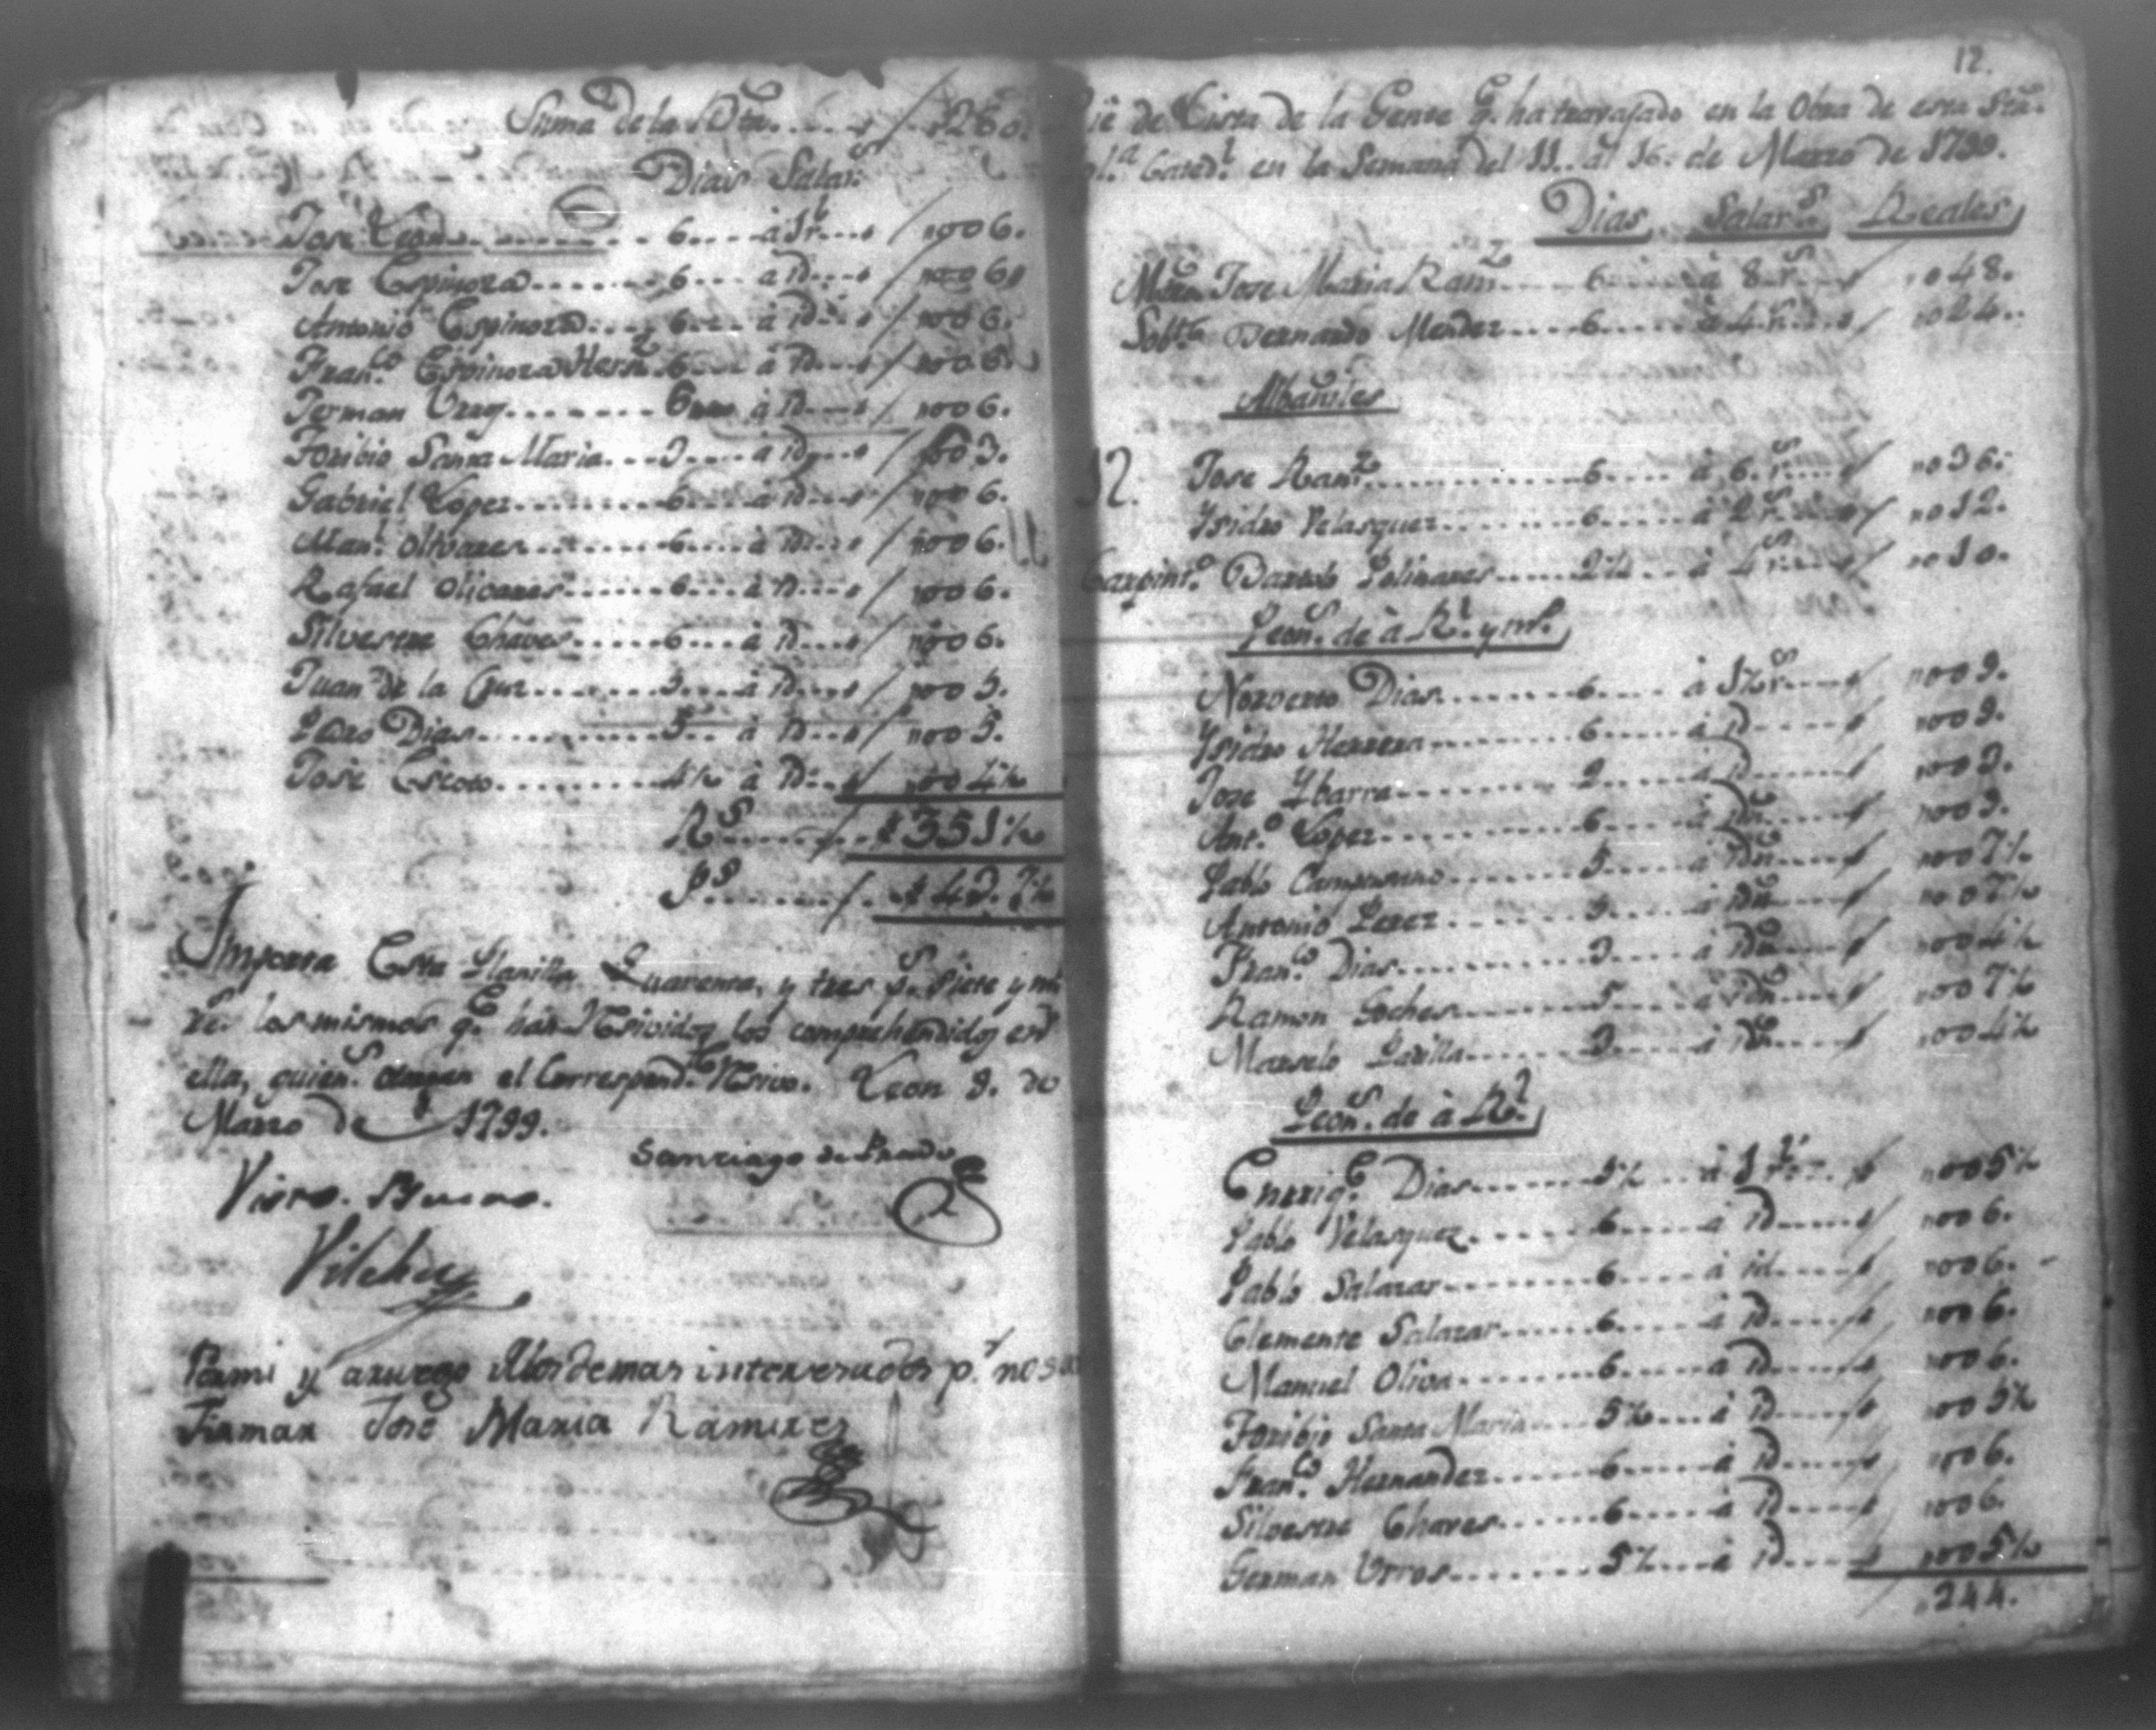 Suma de la Vta. . . . . . . 280.
Dias Salar.s
Jose Leon . . . . . . . 6. . . . à 1 r.l . . . 006.
Jose Espinoza . . . . . . . 6 . . . à ID . . . 006.
Antonio Espinoza . . . . 6 . . . à ID . . . 006.
Fran.co Espinoza Hern.z 6 . . . à ID . . . 006.
German Urroz . . . . . . . 6 . . . à ID . . . 006.
Toribio Santa Maria . . . 3 . . . à ID . . . 003.
Gabriel Lopez . . . . . . . 6 . . . à ID . . . 006.
Man.l Olivares . . . . . . . 6 . . . à ID . . . 006.
Rafael Olivares . . . . . . 6 . . . à ID . . . 006.
Silvestre Chaves . . . . . 6 . . . à ID . . . 006.
Juan de la Cruz . . . . . . 5 . . . à ID . . . 005.
Pedro Dias . . . . . . . . . 5 . . . à ID . . . 005.
Jose Escoto . . . . . . . . 4½ à ID . . . 004½
R.s . . . . . . 351½
P.s . . . . . . 43. 7½
Importa Esta Planilla Quarenta, y tres p.s siete y m.o
r.s los mismos q.e han Resivido los comprehendidos en
ella, quien.s otorgan el Correspond.te Resivo. Leon 9. de
Marzo de 1799.
Santiago de Prado
Visto. Bueno.
Vilches
Pormi y aruego dlosdemas interesados p.r no sa
Firmar José Maria Ramires
12.
de Lista de la Gente q.e ha travajado en la Obra de esta Sta.
Cated.l en la Semana del 11. al 16. de Marzo de 1799.
Dias Salar.s Reales
Mtro. Jose Maria Ram.z . . . . 6 . . . . à 8 r.s . . . 048.
Sobte. Bernardo Mendez . . . . 6 . . . . à 4 r.s . . . 024.
Albañiles
12. Jose Ram.z . . . . . . . 6 . . . . à 6 r.s . . . 036.
Ysidro Velasquez . . . . . . . 6 . . . . à 2 r.s . . . 012.
Carpint.o Bartolo Polinares . . . . 2½ . . . à 4 r.s . . . 010.
Peon.s de à R.l y m.o
Norverto Dias . . . . . . . 6 . . . . à 1½ r.s . . . 009.
Ysidro Herrera . . . . . . . 6 . . . . à ID . . . 009.
Jose Ybarra . . . . . . . 2 . . . . à ID . . . 003.
Ant.o Lopez . . . . . . . 6 . . . . à IDm . . . 009.
Pablo Campusano . . . . . . 5 . . . . à IDm . . . 007½
Antonio Perez . . . . . . . 5 . . . . à IDm . . . 007½
Fran.co Dias . . . . . . . 3 . . . . à IDm . . . 004½
Ramon Goches . . . . . . . 5 . . . . à IDm . . . 007½
Marselo Padilla . . . . . . . 3 . . . . à IDm . . . 004½
Peon.s de à R.l
Enriq.e Dias . . . . . . . 5½ . . . à 1 r.l . . . 005½
Pablo Velasquez . . . . . . . 6 . . . . à ID . . . 006.
Pablo Salazar . . . . . . . 6 . . . . à id . . . 006.
Clemente Salazar . . . . . . . 6 . . . . à ID . . . 006.
Manuel Oliva . . . . . . . 6 . . . . à ID . . . 006.
Toribio Santa Maria . . . 5½ . . . à ID . . . 005½
Fran.co Hernandez . . . . . . 6 . . . . à ID . . . 006.
Silvestre Chaves . . . . . . 6 . . . . à ID . . . 006.
German Urros . . . . . . . 5½ . . . à ID . . . 005½
244.